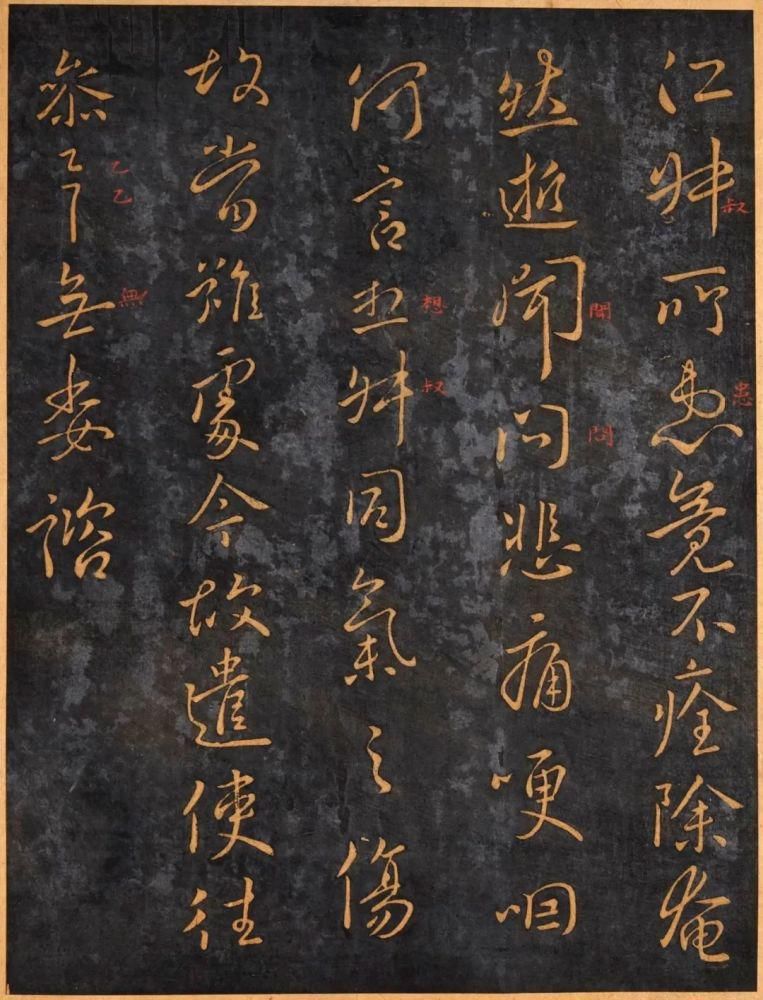 江叔所患竟不痊除奄
叔
患
然逝聞問悲痛哽咽
聞
問
何言想叔同氣之傷
想
叔
故當難處今故遣使往
參乙乙無婁諮
乙乙
無